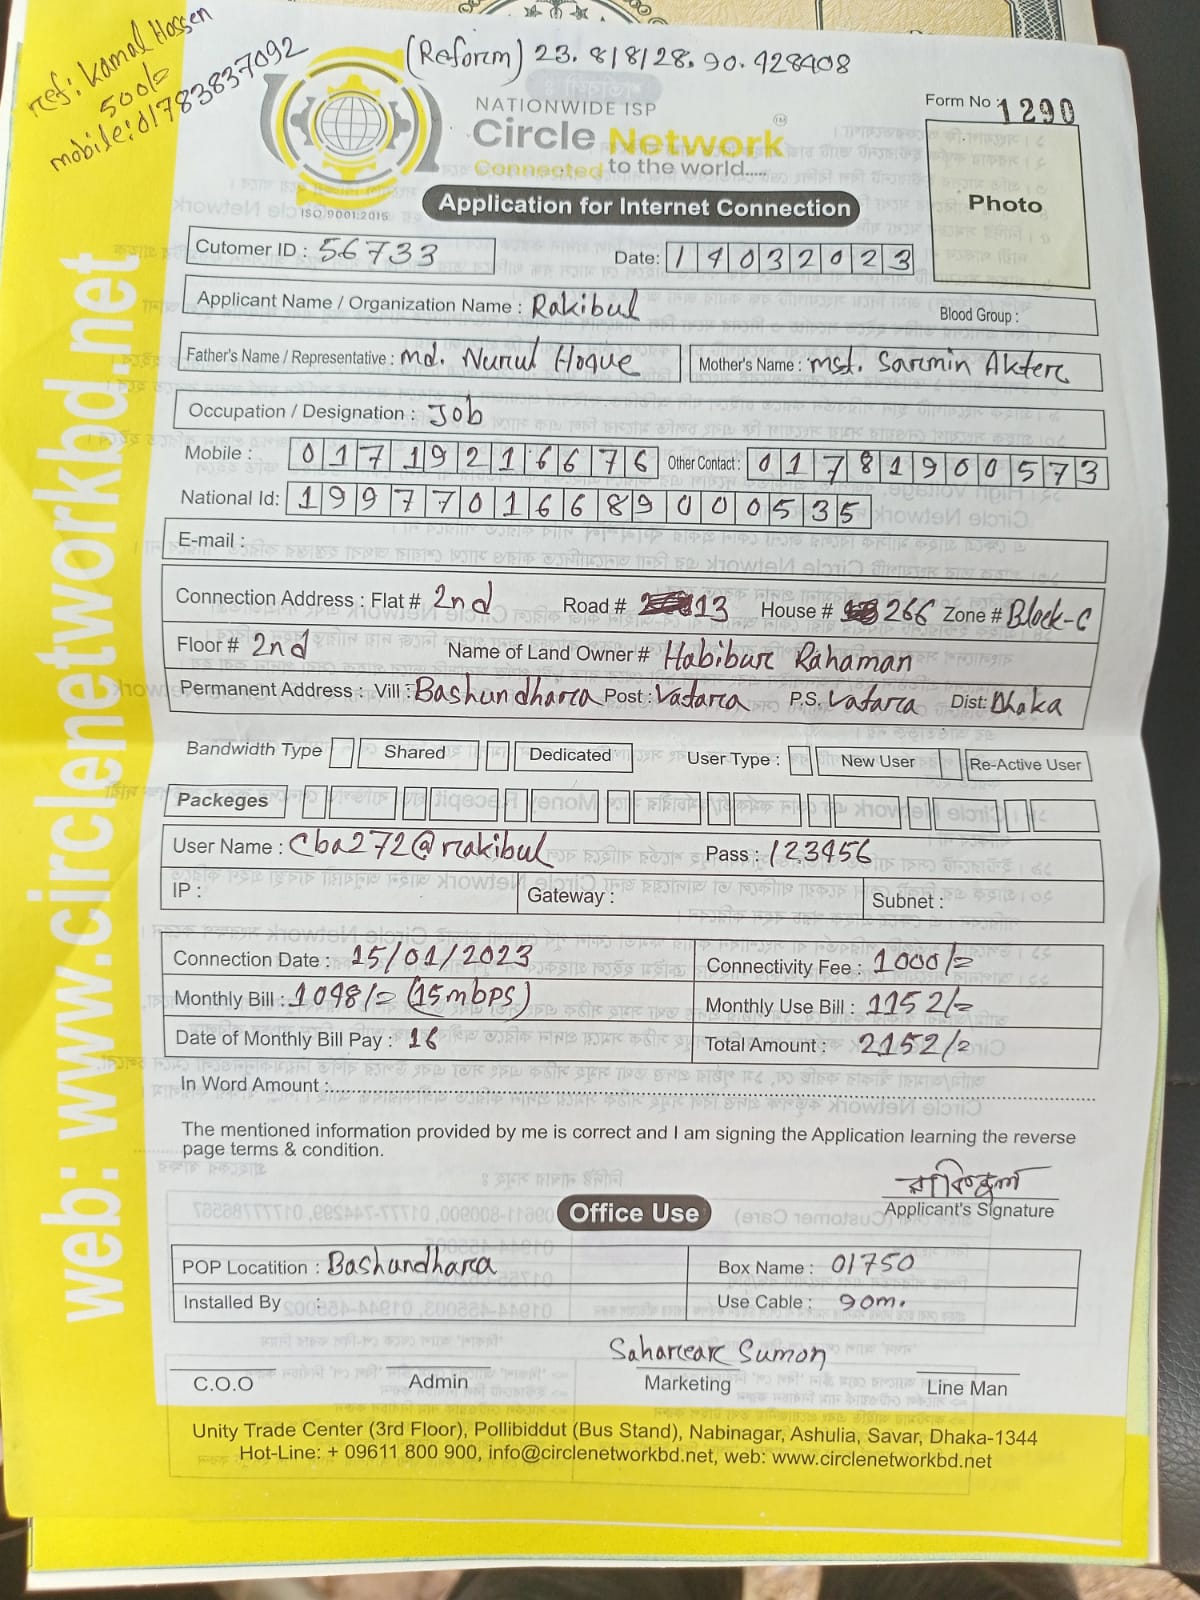 ref: Kamal Hossen
500/=
mobile: 01783837092
(Reform) 23. 8/8/28.90.428408
NATIONWIDE ISP
Circle Network TM
Connected to the world.....
ISO 9001:2015
Form No : 1290
Photo
Application for Internet Connection
Cutomer ID : 56733
Date: 14032023
Applicant Name / Organization Name : Rakibul
Blood Group :
Father's Name / Representative : md. Nurul Hoque
Mother's Name : mst. Sarmin Akter
Occupation / Designation : Job
Mobile : 01719216676 Other Contact : 01781900573
National Id: 19977016689000535
E-mail :
Connection Address : Flat # 2nd Road # 13 House # 266 Zone # Block-C
Floor # 2nd Name of Land Owner # Habibur Rahaman
Permanent Address : Vill : Bashundhara Post : Vatara P.S. Vatara Dist: Dhaka
Bandwidth Type Shared Dedicated User Type : New User Re-Active User
Packeges
User Name : cba272@rakibul Pass : 123456
IP : Gateway : Subnet :
Connection Date : 15/01/2023 Connectivity Fee : 1000/=
Monthly Bill : 1098/= (15mbps) Monthly Use Bill : 1152/=
Date of Monthly Bill Pay : 16 Total Amount : 2152/=
In Word Amount :
The mentioned information provided by me is correct and I am signing the Application learning the reverse
page terms & condition.
রাকিবুল
Applicant's Signature
Office Use
POP Locatition : Bashundhara Box Name : 01750
Installed By : Use Cable : 90m.
Saharear Sumon
C.O.O Admin Marketing Line Man
Unity Trade Center (3rd Floor), Pollibiddut (Bus Stand), Nabinagar, Ashulia, Savar, Dhaka-1344
Hot-Line: + 09611 800 900, info@circlenetworkbd.net, web: www.circlenetworkbd.net
web: www.circlenetworkbd.net